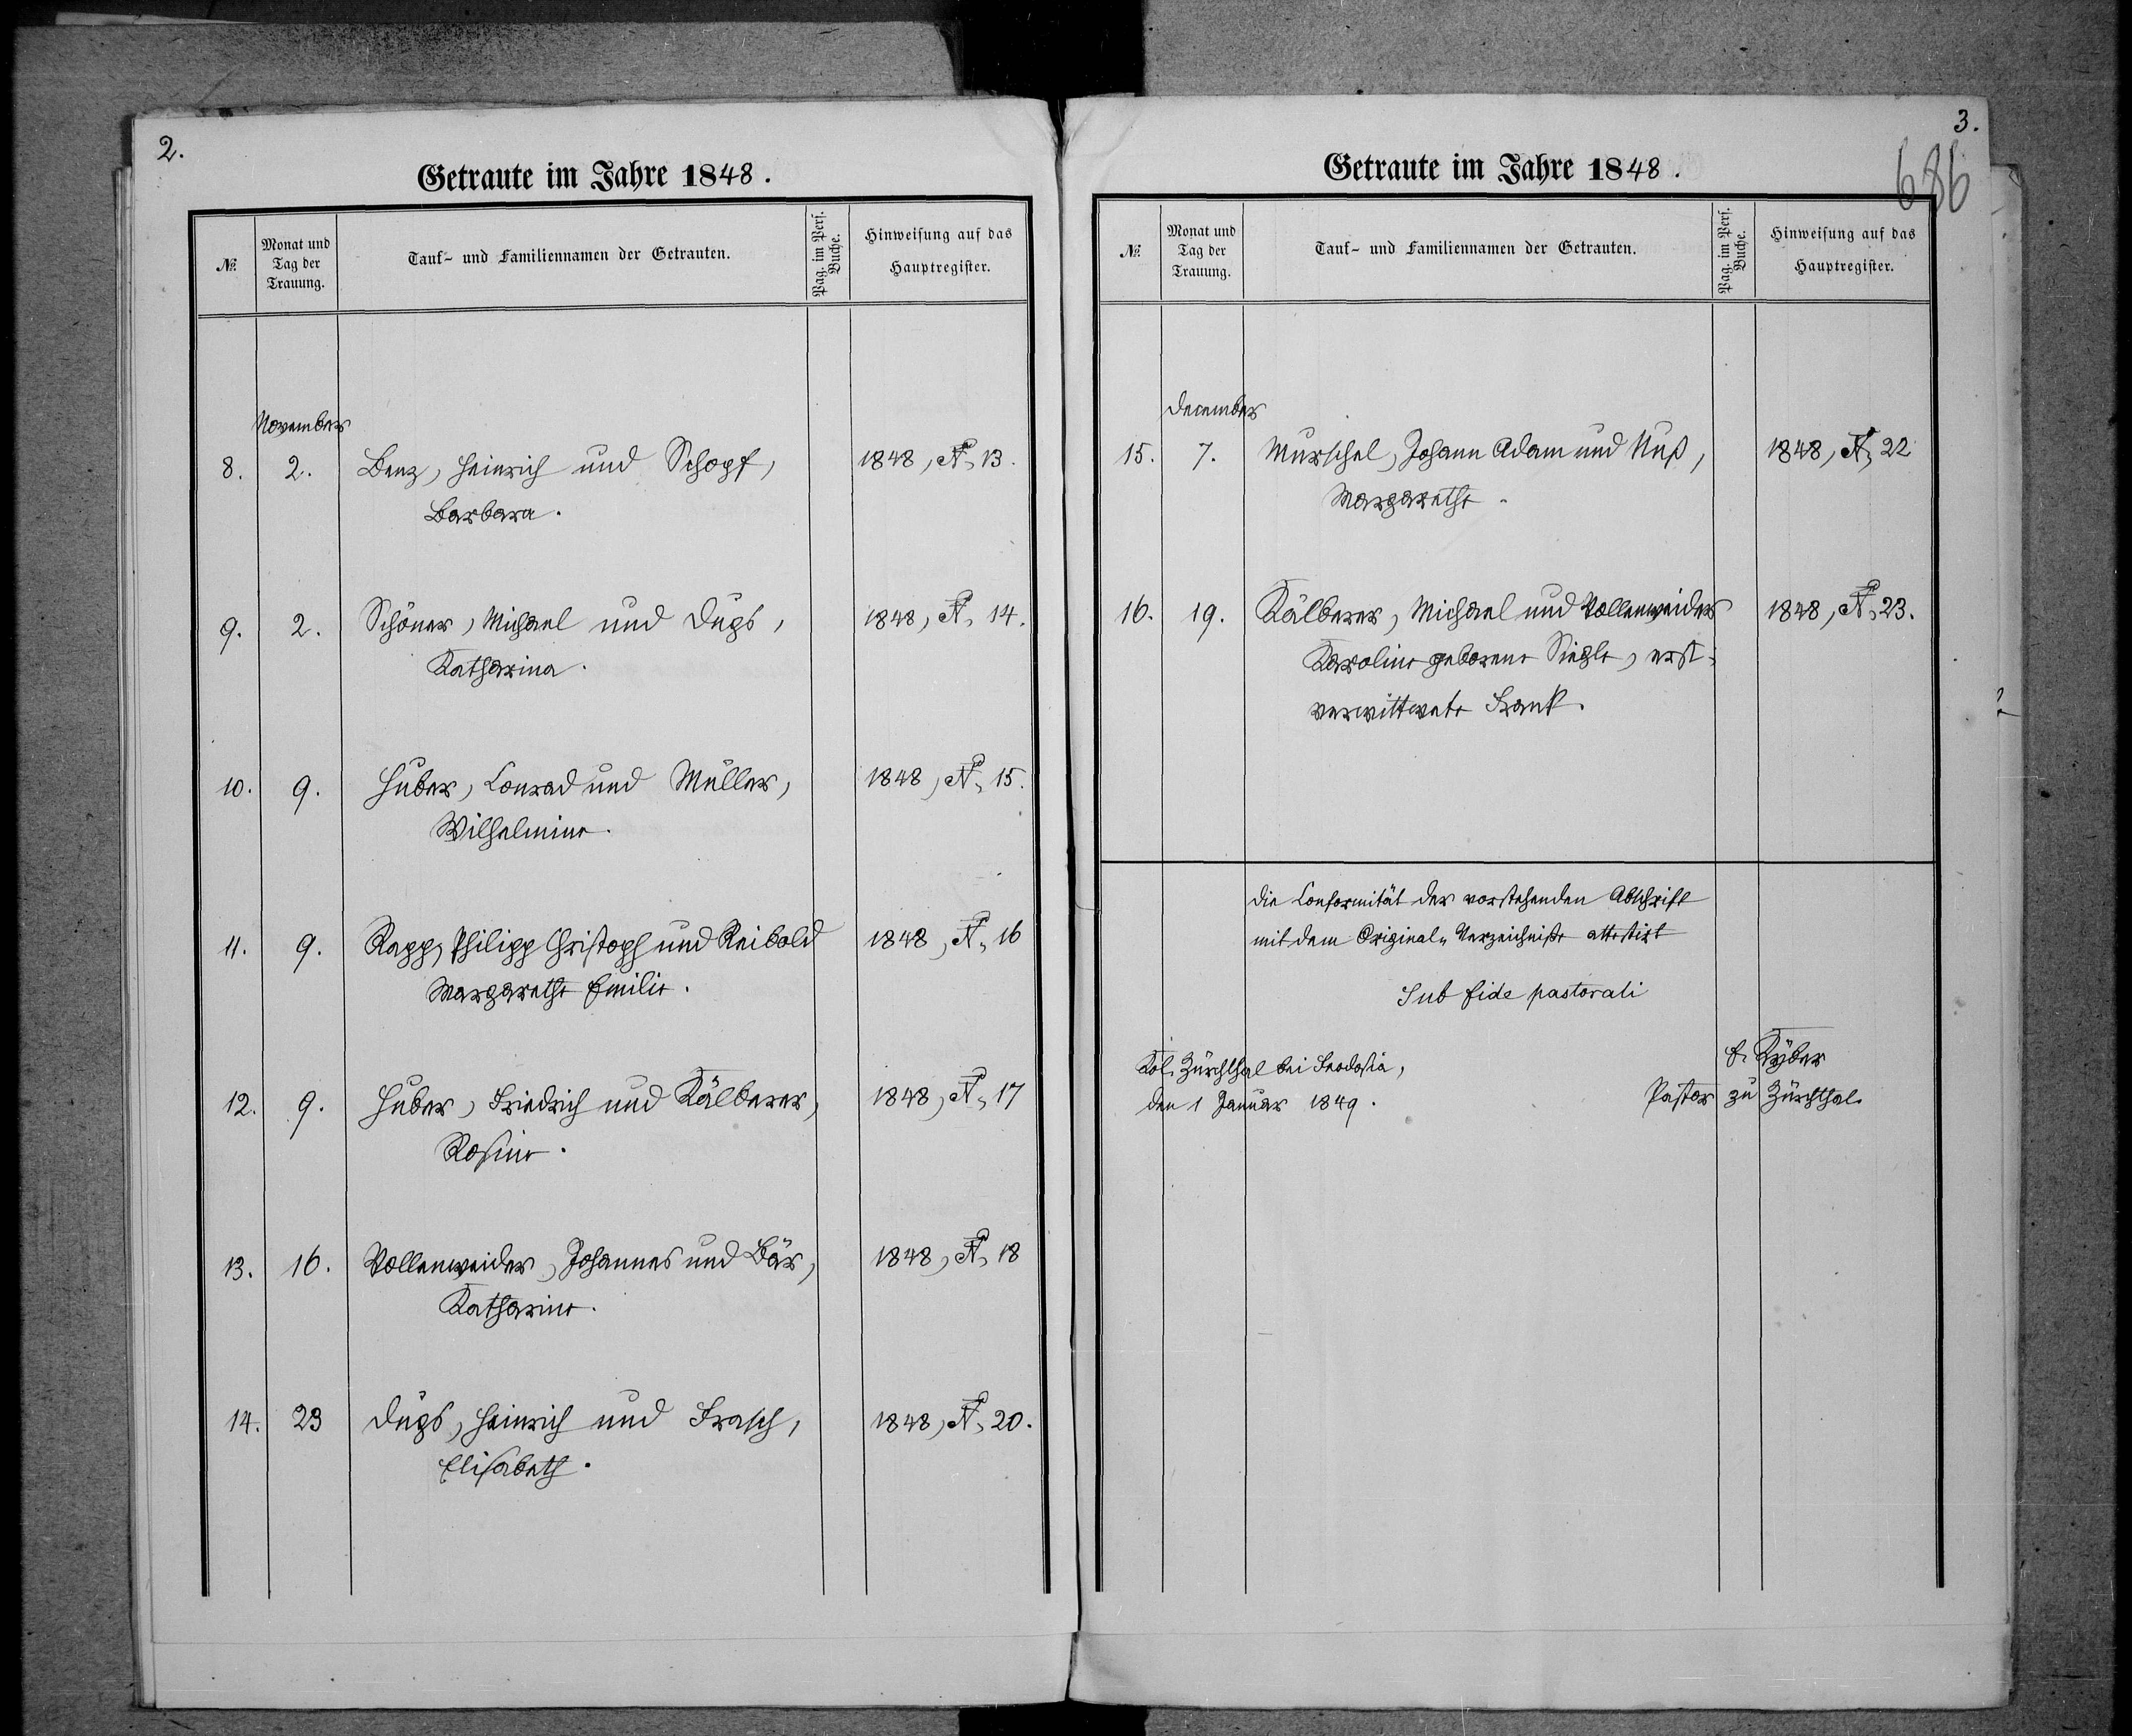 2.
Getraute im Jahre 1848.
№.
Monat und
Tag der
Trauung.
Tauf- und Familiennamen der Getrauten.
Pag. im Pers.
Buche.
Hinweisung auf das
Hauptregister.
November
8. 2. Benz, Heinrich und Schopf, 1848, №. 13.
Barbara.
9. 2. Schöner, Michael und Dugs, 1848, №. 14.
Katharina.
10. 9. Huber, Conrad und Müller, 1848, №. 15.
Wilhelmine.
11. 9. Rapp, Philipp Christoph und Reibold 1848, №. 16
Margarethe Emilie.
12. 9. Huber, Friedrich und Kälberer, 1848, №. 17
Rosine.
13. 16. Vollenweider, Johannes und Bär, 1848, №. 18
Katharine.
14. 23 Dugs, Heinrich und Frasch, 1848, №. 20.
Elisabeth.
3.
686
Getraute im Jahre 1848.
№.
Monat und
Tag der
Trauung.
Tauf- und Familiennamen der Getrauten.
Pag. im Pers.
Buche.
Hinweisung auf das
Hauptregister.
December
15. 7. Murschel, Johann Adam und Nuß, 1848, №. 22
Margarethe.
16. 19. Kälberer, Michael und Vollenweider 1848, №. 23.
Karoline geborene Siegle, erst-
verwittwete Frank.
Die Conformität der vorstehenden Abschrift
mit dem Original-Verzeichniße attestirt
Sub fide pastorali
Kol. Zürchthal bei Feodosia, E. Kyber
den 1 Januar 1849. Pastor zu Zürchthal.